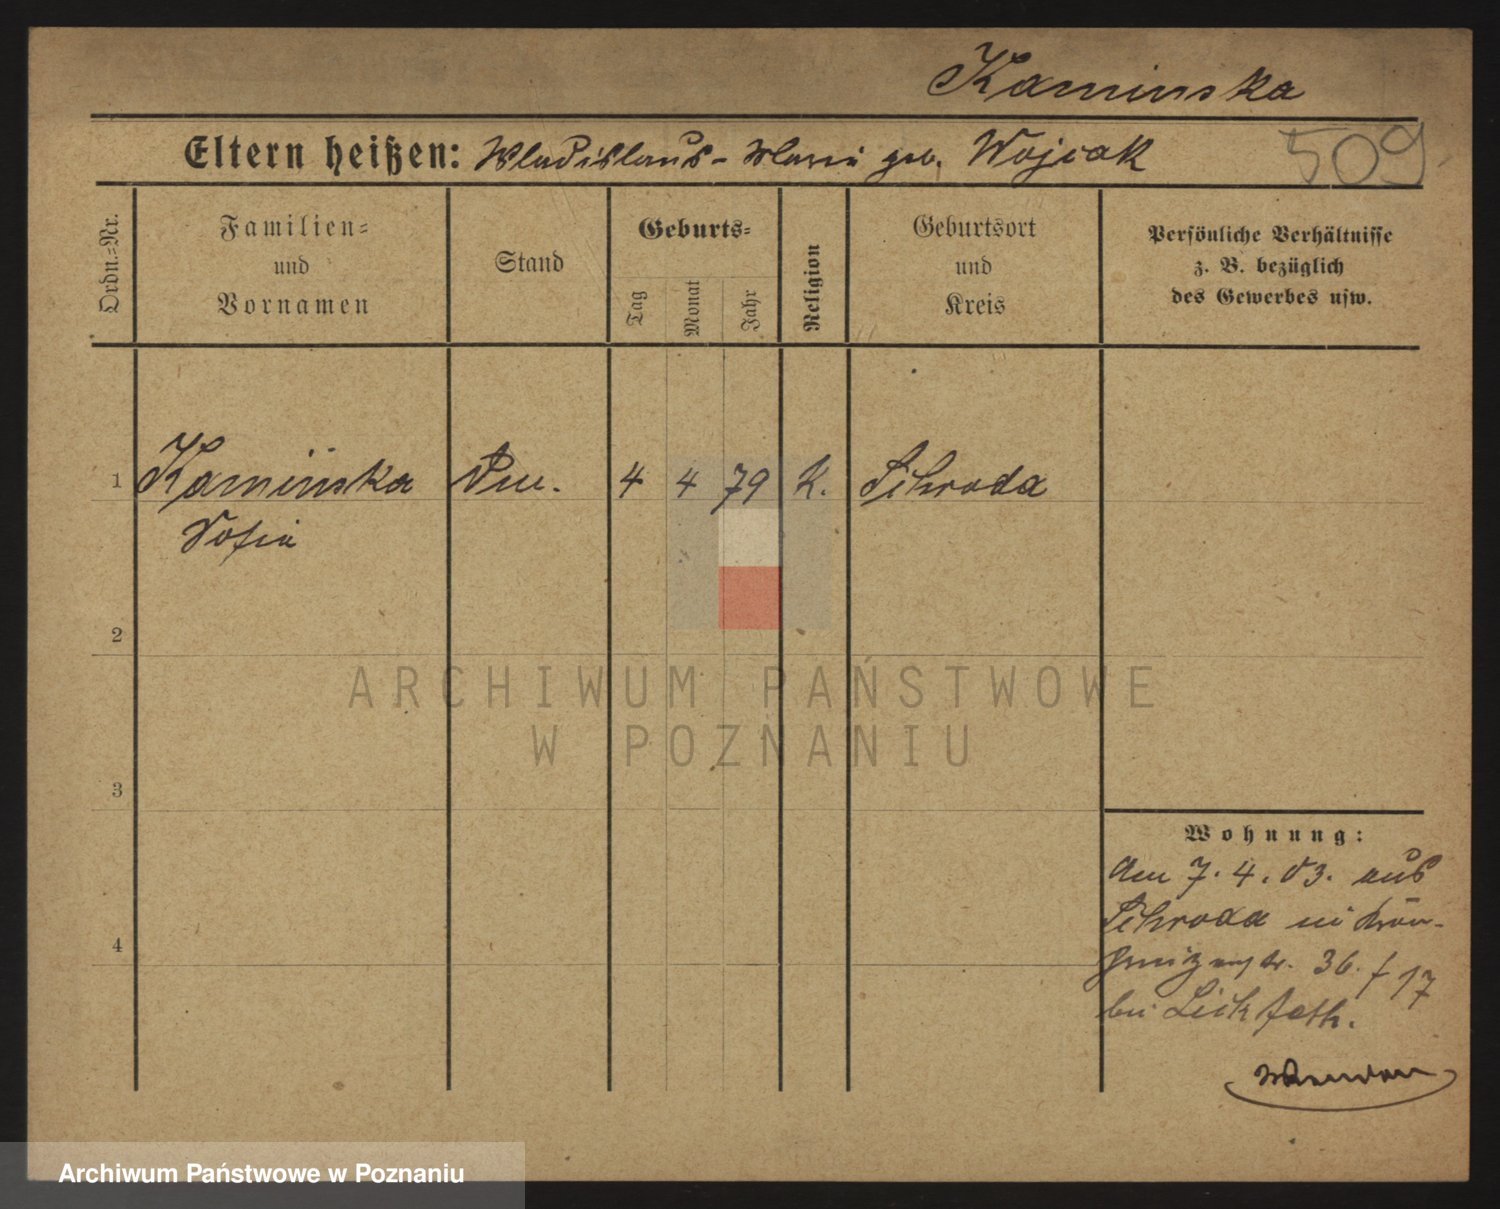 Kaminska
Eltern heißen: Wladislaus - Maria geb. Wojcak 509
Ordn.-Nr.
Familien-
und
Vornamen
Stand
Geburts-
Tag
Monat
Jahr
Religion
Geburtsort
und
Kreis
Persönliche Verhältnisse
z. B. bezüglich
des Gewerbes usw.
1 Kaminska 4 4 79 K. Schroda
Sofia
2
3
4
ARCHIWUM PAŃSTWOWE
W POZNANIU
Wohnung:
Am 7.4.03. aus
Schroda in
36. f 17
bei
Archiwum Państwowe w Poznaniu